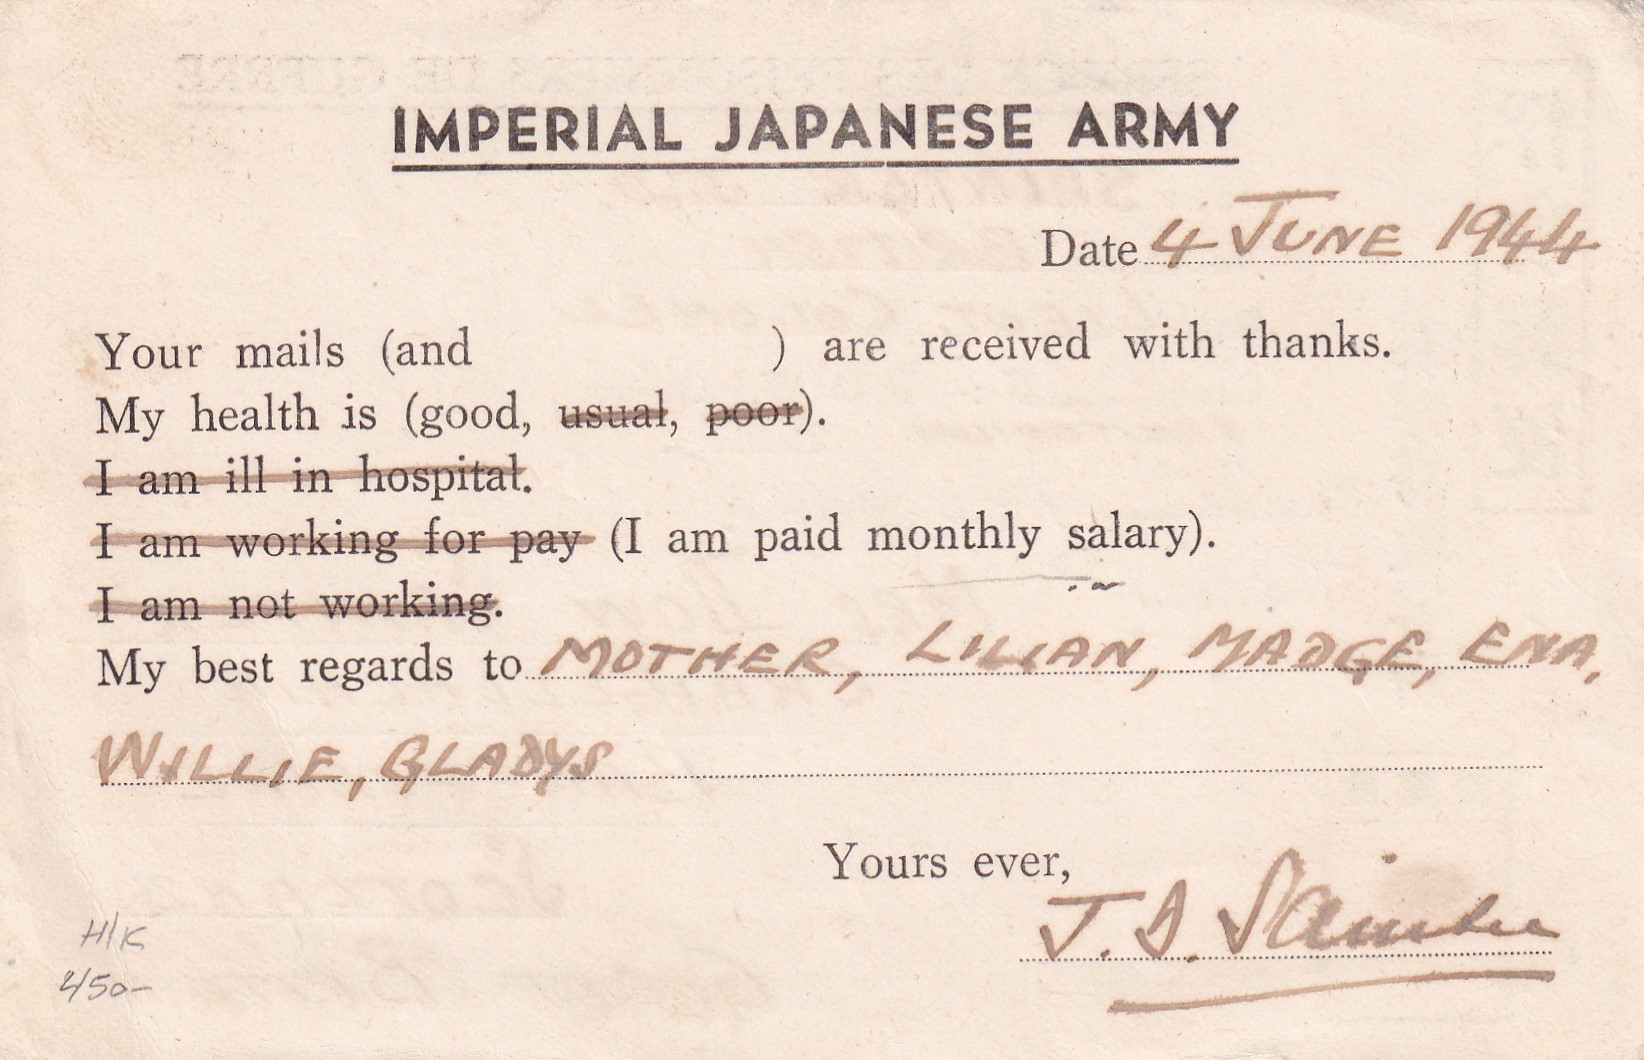 IMPERIAL JAPANESE ARMY
Date 4 JUNE 1944
Your mails (and ) are received with thanks.
My health is (good, usual, poor).
I am ill in hospital.
I am working for pay (I am paid monthly salary).
I am not working.
My best regards to MOTHER, LILIAN, MADGE, ENA,
WILLIE, GLADYS
Yours ever,
J.
H/K